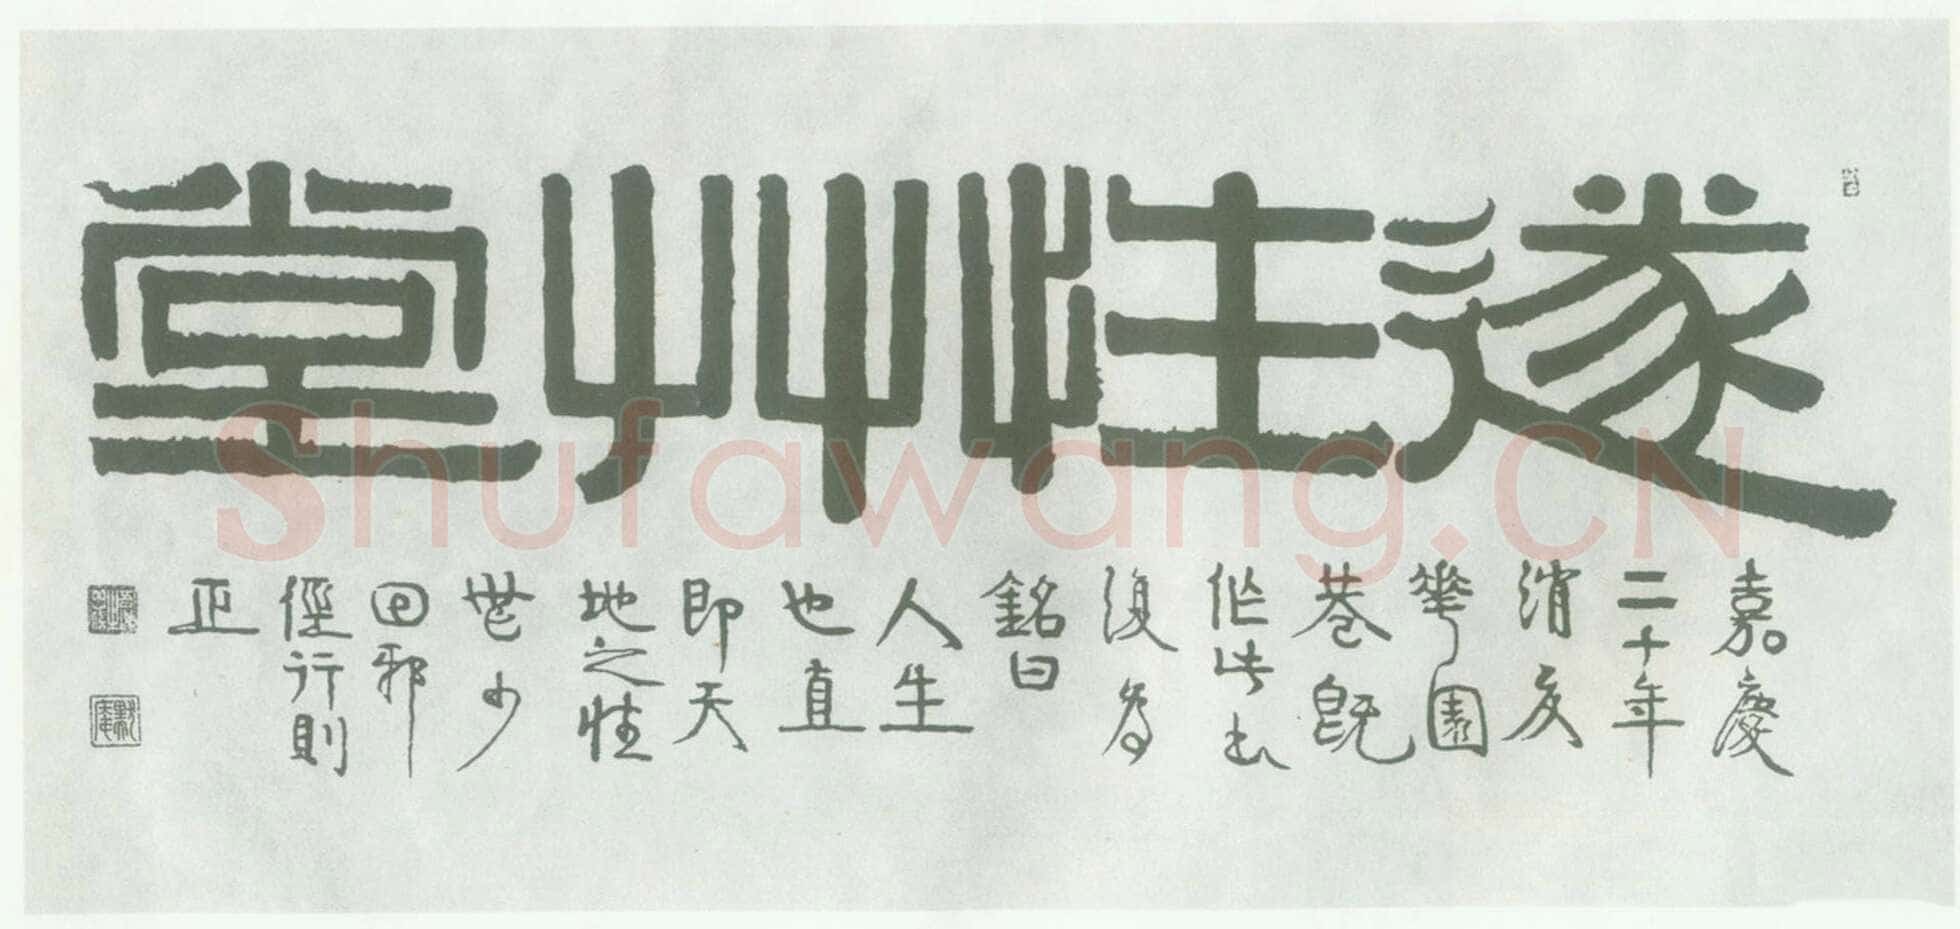 遂性艸堂
嘉慶
二十年
消夏
華園
巷既
作此
復為
銘曰
人生
也直
即天
地之性
無少
回邪
徑行則
正
Shufawang.CN